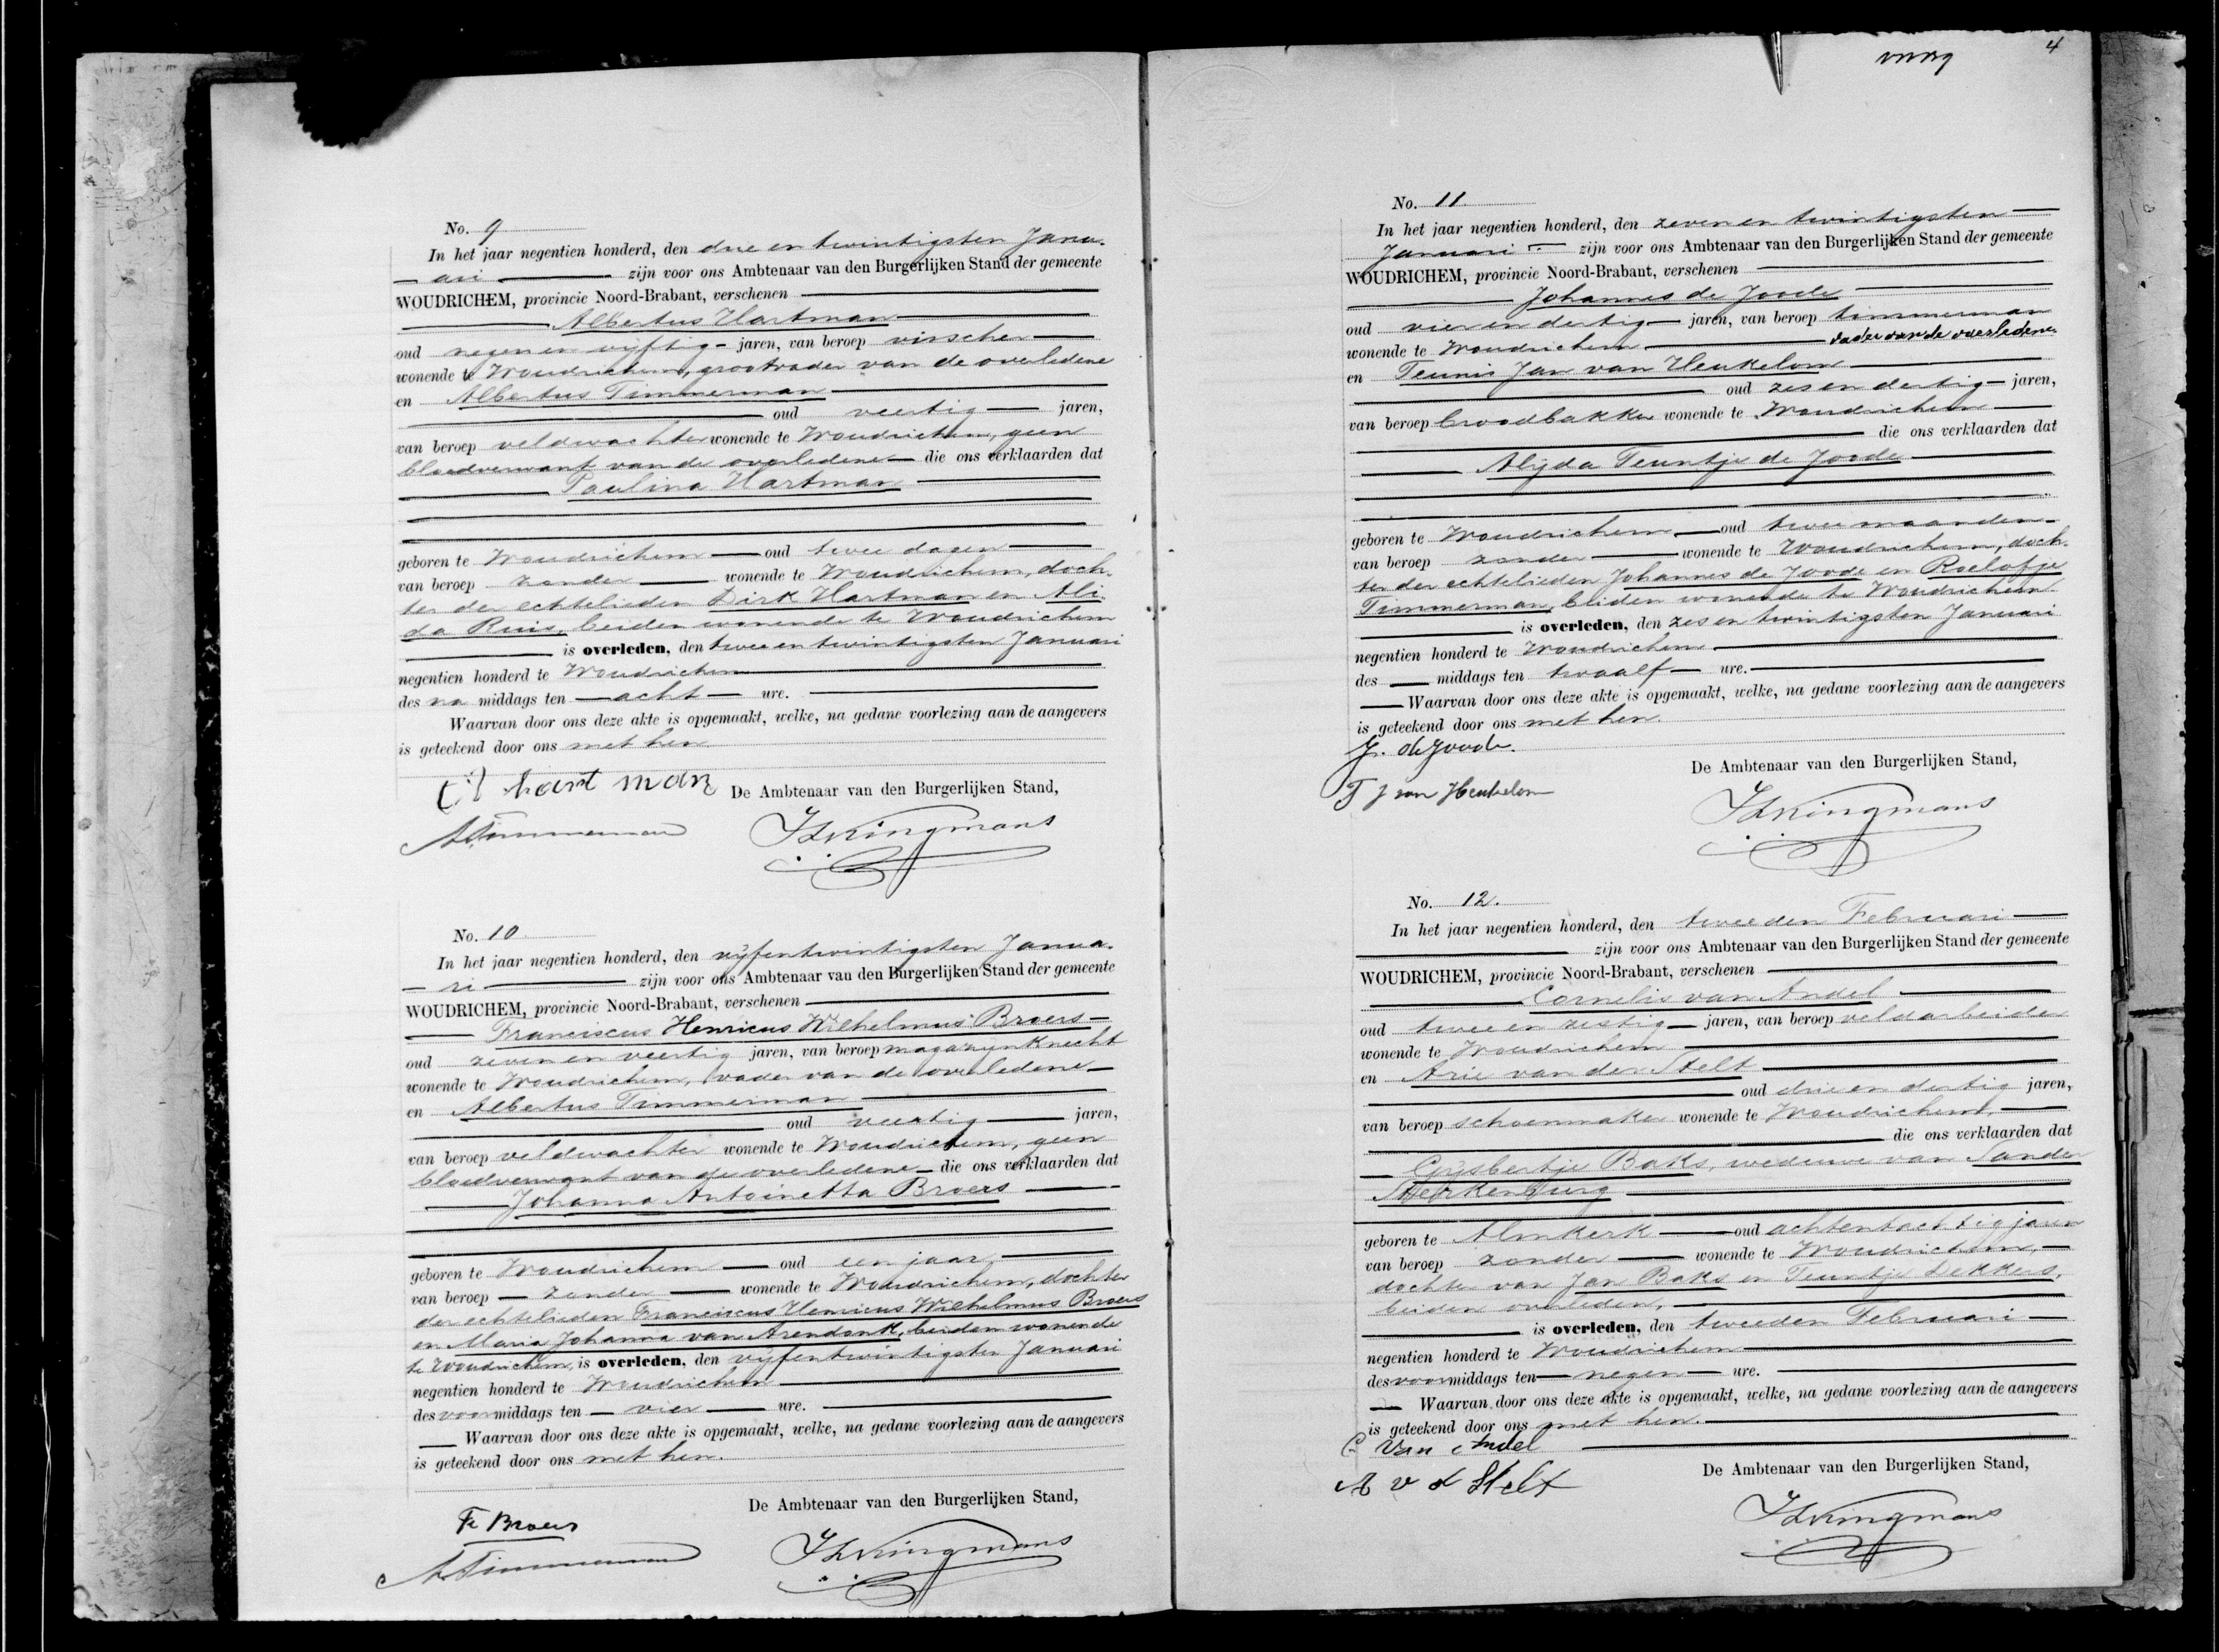 No. 9
In het jaar negentien honderd, den drie en twintigsten Janu-
ari zijn voor ons Ambtenaar van den Burgerlijken Stand der gemeente
WOUDRICHEM, provincie Noord-Brabant, verschenen
Albertus Hartman
oud negen en vijftig jaren, van beroep visscher
wonende te Woudrichem, grootvader van de overledene
en Albertus Timmerman
oud veertig jaren,
van beroep veldwachter wonende te Woudrichem, geen
bloedverwant van de overledene die ons verklaarden dat
Paulina Hartman
geboren te Woudrichem oud twee dagen
van beroep zonder wonende te Woudrichem, doch-
ter der echtelieden Dirk Hartman en Ali-
da Ruis, beiden wonende te Woudrichem
is overleden, den twee en twintigsten Januari
negentien honderd te Woudrichem
des na middags ten acht ure.
Waarvan door ons deze akte is opgemaakt, welke, na gedane voorlezing aan de aangevers
is geteekend door ons met hen
hartman De Ambtenaar van den Burgerlijken Stand,
ATimmerman Kingmans
No. 10
In het jaar negentien honderd, den vijfentwintigsten Janua-
ri zijn voor ons Ambtenaar van den Burgerlijken Stand der gemeente
WOUDRICHEM, provincie Noord-Brabant, verschenen
Franciscus Henricus Wilhelmus Broers
oud zeven en veertig jaren, van beroep magazijnknecht
wonende te Woudrichem, vader van de overledene
en Albertus Timmerman
oud veertig jaren,
van beroep veldwachter wonende te Woudrichem, geen
bloedverwant van de overledene die ons verklaarden dat
Johanna Antoinetta Broers
geboren te Woudrichem oud een jaar
van beroep zonder wonende te Woudrichem, dochter
der echtelieden Franciscus Henricus Wilhelmus Broers
en Maria Johanna van Arendonk, beiden wonende
te Woudrichem, is overleden, den vijfentwintigsten Januari
negentien honderd te Woudrichem
des voormiddags ten vier ure.
Waarvan door ons deze akte is opgemaakt, welke, na gedane voorlezing aan de aangevers
is geteekend door ons met hen.
De Ambtenaar van den Burgerlijken Stand,
Fr Broers
ATimmerman Kingmans
4
No. 11
In het jaar negentien honderd, den zeven en twintigsten
Januari zijn voor ons Ambtenaar van den Burgerlijken Stand der gemeente
WOUDRICHEM, provincie Noord-Brabant, verschenen
Johannes de Joode
oud vier en dertig jaren, van beroep timmerman
wonende te Woudrichem vader van de overledene
en Teunis Jan van Heukelom
oud zes en dertig jaren,
van beroep broodbakker wonende te Woudrichem
die ons verklaarden dat
Alijda Teuntje de Joode
geboren te Woudrichem oud twee maanden
van beroep zonder wonende te Woudrichem, doch-
ter der echtelieden Johannes de Joode en Roelofje
Timmerman, beiden wonende te Woudrichem
is overleden, den zes en twintigsten Januari
negentien honderd te Woudrichem
des middags ten twaalf ure.
Waarvan door ons deze akte is opgemaakt, welke, na gedane voorlezing aan de aangevers
is geteekend door ons met hen.
J. de Joode.
De Ambtenaar van den Burgerlijken Stand,
T J van Heukelom Kingmans
No. 12.
In het jaar negentien honderd, den tweeden Februari
zijn voor ons Ambtenaar van den Burgerlijken Stand der gemeente
WOUDRICHEM, provincie Noord-Brabant, verschenen
Cornelis van Andel
oud twee en zestig jaren, van beroep veldarbeider
wonende te Woudrichem
en Arie van der Stelt
oud drie en dertig jaren,
van beroep schoenmaker wonende te Woudrichem,
die ons verklaarden dat
Gijsbertje Baks, weduwe van Sander
Sterkenburg
geboren te Almkerk oud achtentachtig jaren
van beroep zonder wonende te Woudrichem,
dochter van Jan Baks en Teuntje Dekkers,
beiden overleden,
is overleden, den tweeden Februari
negentien honderd te Woudrichem
des voormiddags ten negen ure.
Waarvan door ons deze akte is opgemaakt, welke, na gedane voorlezing aan de aangevers
is geteekend door ons met hen.
C Van Andel
De Ambtenaar van den Burgerlijken Stand,
A v d Stelt Kingmans